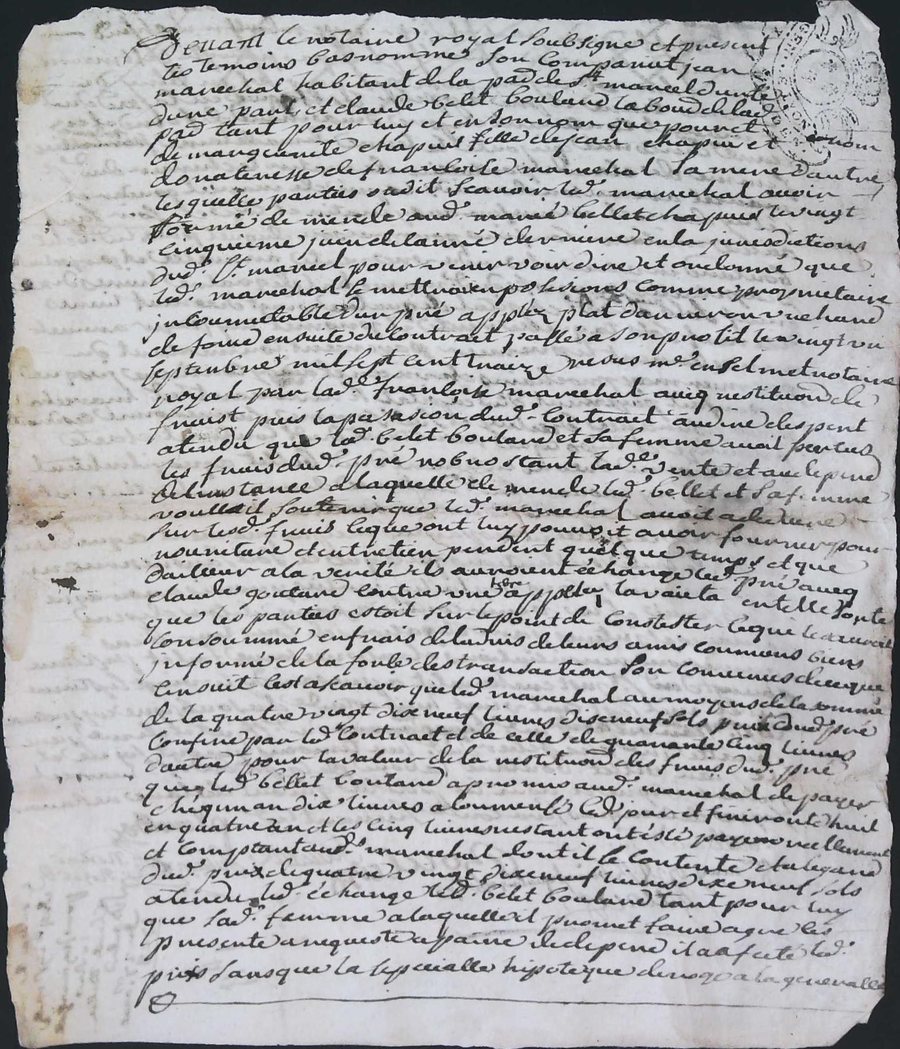 Devant le notaire royal soubsigné et present
les temoins bas nommés son comparut jean
marechal habitant de la parde st marcel durfé
dune part, et claude belet bouland laboud de lad
pard tant pour luy et en son nom que pour et nom
de marguerite chapuis fille de jean chapuis et
donateresse de francoise marechal sa mere d'autre
lesquelle parties ont dit scavoir led. marechal avoir
formé demende aud. marié bellet chapuis le vingt
cinquieme juin de lanné derniere en la jurisdictions
dud. st. marcel pour venir voir dire et ordonné que
led. marechal se mettroit en posesions comme proprietaire
incommutable dun pré appellez plat
de foin ensuite du contrait passé a son profit le vingt
septenbre mil sept cent traize recus me. notaire
royal par lad. francoise marechal aveq restituon de
fruist puis la pasasion dud. contract audire dexpert
atendu que led. belet bouland et sa femme avoit percus
les fruis dud. pré nobnostant lad. vente et aux depend
de linstance a laquelle demende led. bellet et sa femme
vouloit soutenir que led. marechal avoit
sur lesd. fruis lequel ont luy pouvoit avoir fournir pour
nouriture et entretien pendent quel que temps et que
dailleur a la verité ils auroient échange led. pré aveq
claude goutard contre une terre appellez la vaieta en telle sorte
que les parties estoit sur le point de constester ce que
consoummé en frais de lavis de leurs amis coumuns biens
informé de la force des transaction son convenus de ce que
en suit c'est a scavoir que led. marechal au moyens de la somme
de la quatre vingt dix neuf livres dix neuf sols prix dud. pré
confiné par led. contract et de celle de quarante cinq livres
dautre pour la valeur de la restitution des fruis dud. pré
que led. bellet bouland a promis aud. marechal de payer
chéque an dix livres a coumensé ce d. jour et finiront le huit
en quatre an et les cinq livres restant ont été payé reellement
et comptant aud. marechal dont il se contente et a legard
dud. prix de quatre vingt dix neuf livres dixe neuf sols
atendu led. échange led. belet bouland tant pour luy
que sad. femme a laquelle il promet faire agreé les
presente a requeste a paine de depend il a afecté led.
prés sans que la speciallle hipoteque deroge a la generalle